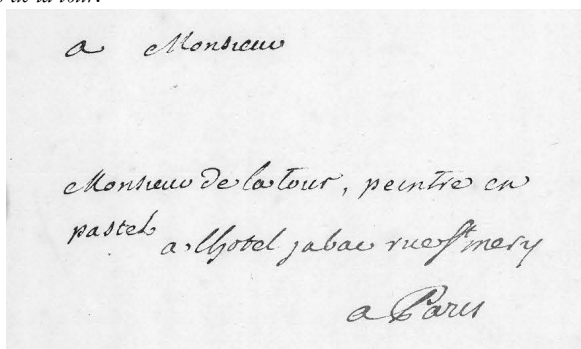 de la tour.
a Monsieur
Monsieur de la tour, peintre en
pastel
a lhotel jabac rue St mery
a Paris